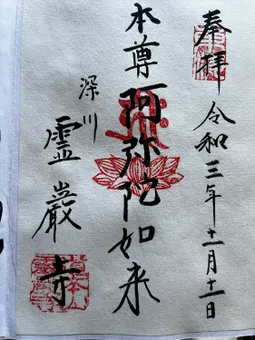 奉拝
令和三年十一月十一日
本尊阿弥陀如来
深川
霊巌寺